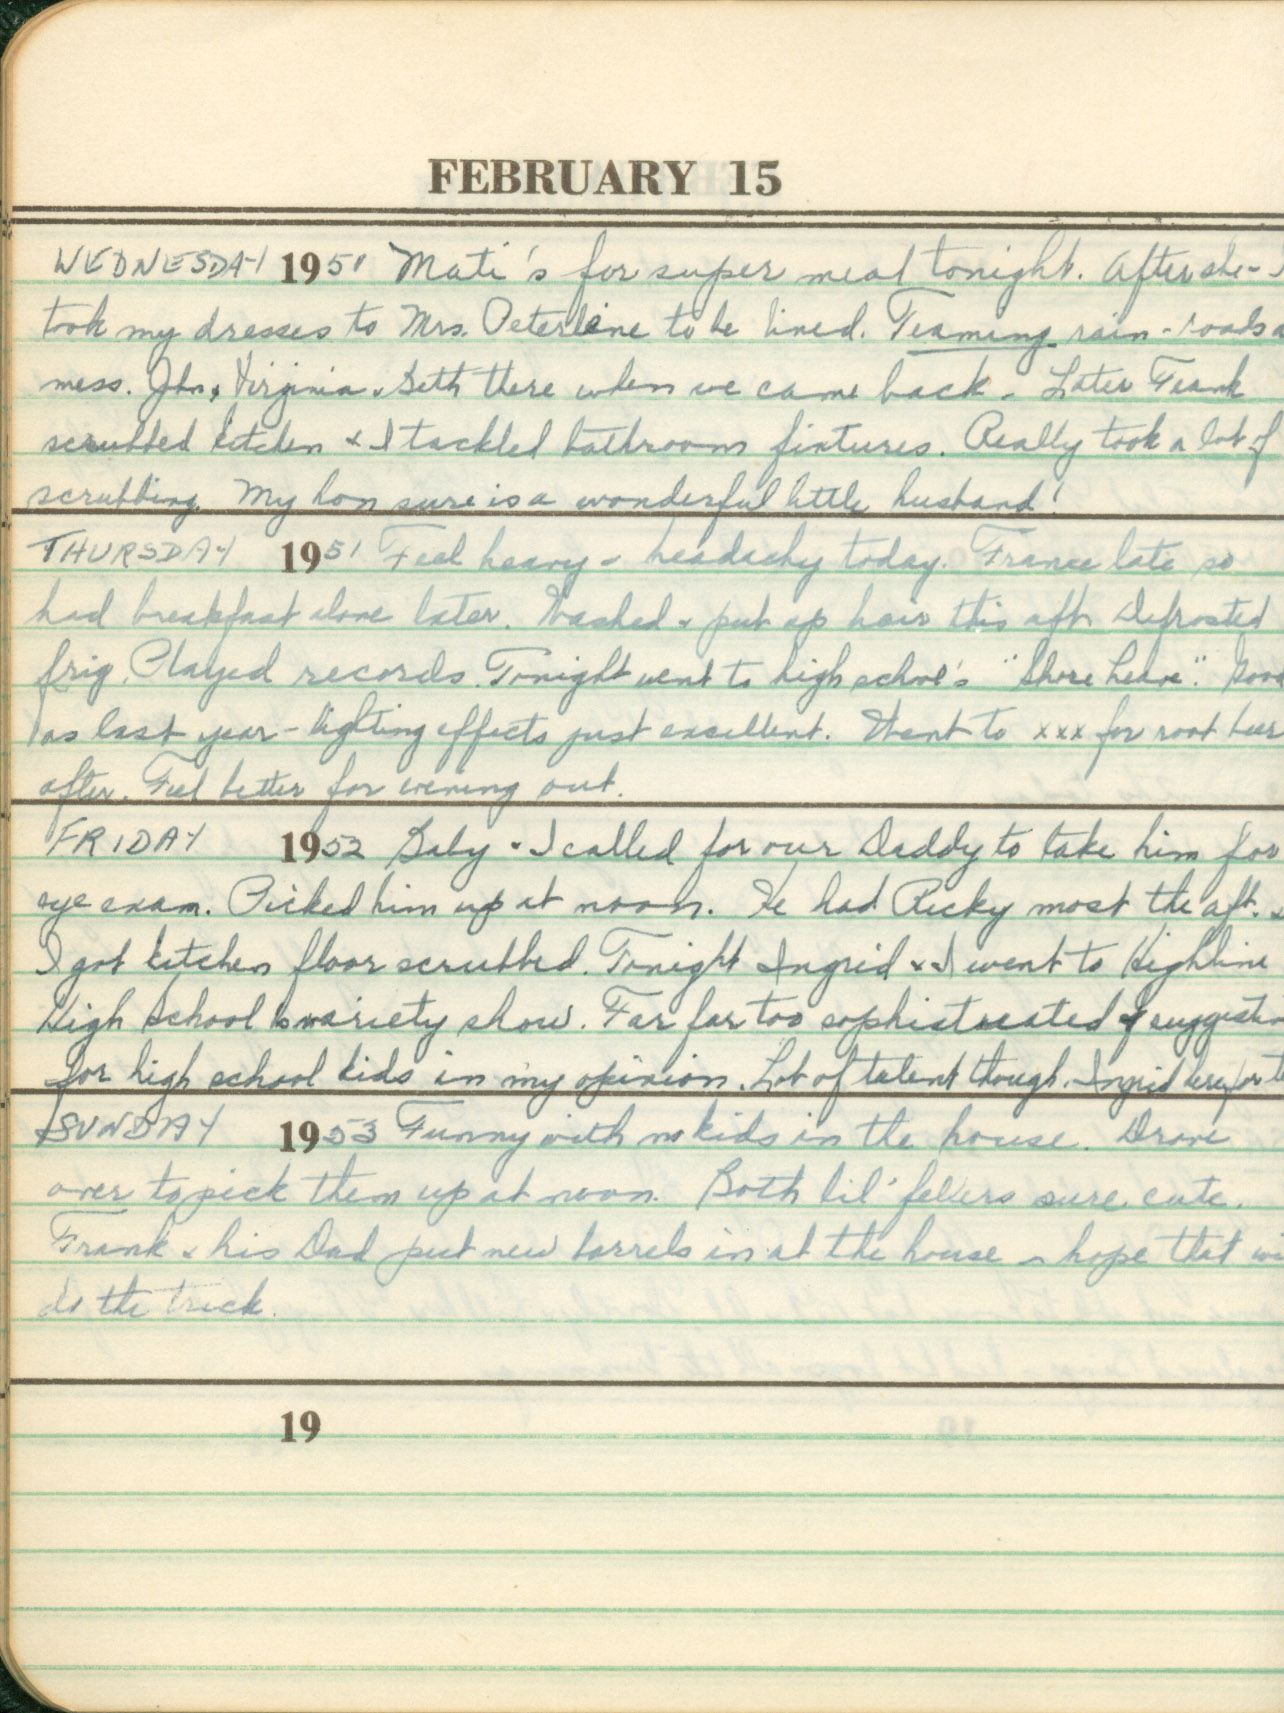 FEBRUARY 15
WEDNESDAY 1951 Mati's for super meal tonight. After she - I
took my dresses to Mrs. Peterleine to be lined. Teaming rain - roads a
mess. John, Virginia & Beth there when we came back. Later Frank
scrubbed kitchen & I tackled bathroom fixtures. Really took a lot of
scrubbing. My hon sure is a wonderful little husband!
THURSDAY 1951 Feel heavy & headachy today. France late so
had breakfast alone later. Washed & put up hair this aft. Defrosted
frig. Played records. Tonight went to high school's "Shore Leave". Good
as last year - lighting effects just excellent. Went to xxx for root beer
after. Feel better for evening out.
FRIDAY 1952 Baby & I called for our Daddy to take him for
eye exam. Picked him up at noon. He had Ricky most the aft. &
I got kitchen floor scrubbed. Tonight Ingrid & I went to Highline
High School's variety show. Far far too sophisticated &
for high school kids in my opinion. Lot of talent though. Ingrid here for
SUNDAY 1953 Funny with no kids in the house. Drove
over to pick them up at noon. Both lil' fellers sure cute.
Frank & his Dad put new barrels in at the house - hope that wi
do the trick.
19